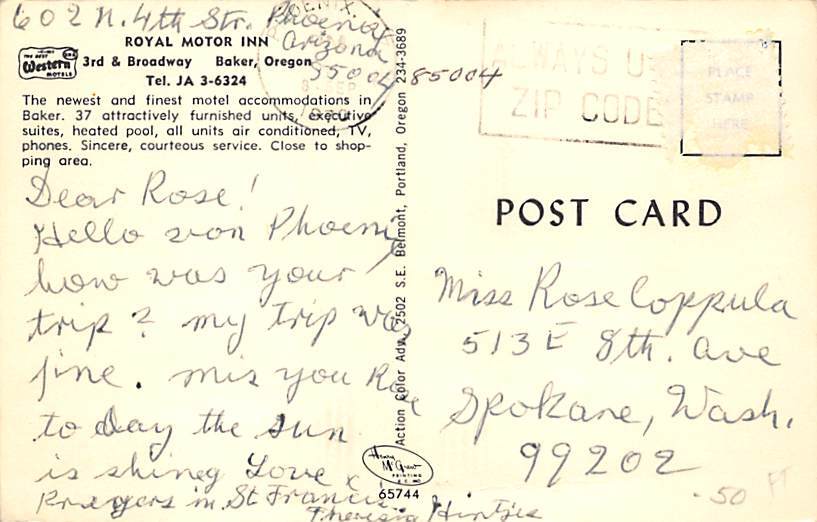 602 N. 4th Str. Phoenix
Arizona
85004
ROYAL MOTOR INN
Best Western MOTELS
3rd & Broadway Baker, Oregon
Tel. JA 3-6324
The newest and finest motel accommodations in
Baker. 37 attractively furnished units, executive
suites, heated pool, all units air conditioned, TV,
phones. Sincere, courteous service. Close to shop-
ping area.
Dear Rose!
Hello von Phoenix
how was your
trip? my trip was
fine. mis you Rose
to day the sun
is shiney Love
Prayers in St Francis.
Theresia
Action Color Adv. 2502 S.E. Belmont, Portland, Oregon 234-3689
Henry McGrew
PRINTING
65744
ALWAYS U
ZIP CODE
PLACE
STAMP
HERE
POST CARD
Miss Rose Coppula
513 E 8th. ave
Spokane, Wash.
99202
.50